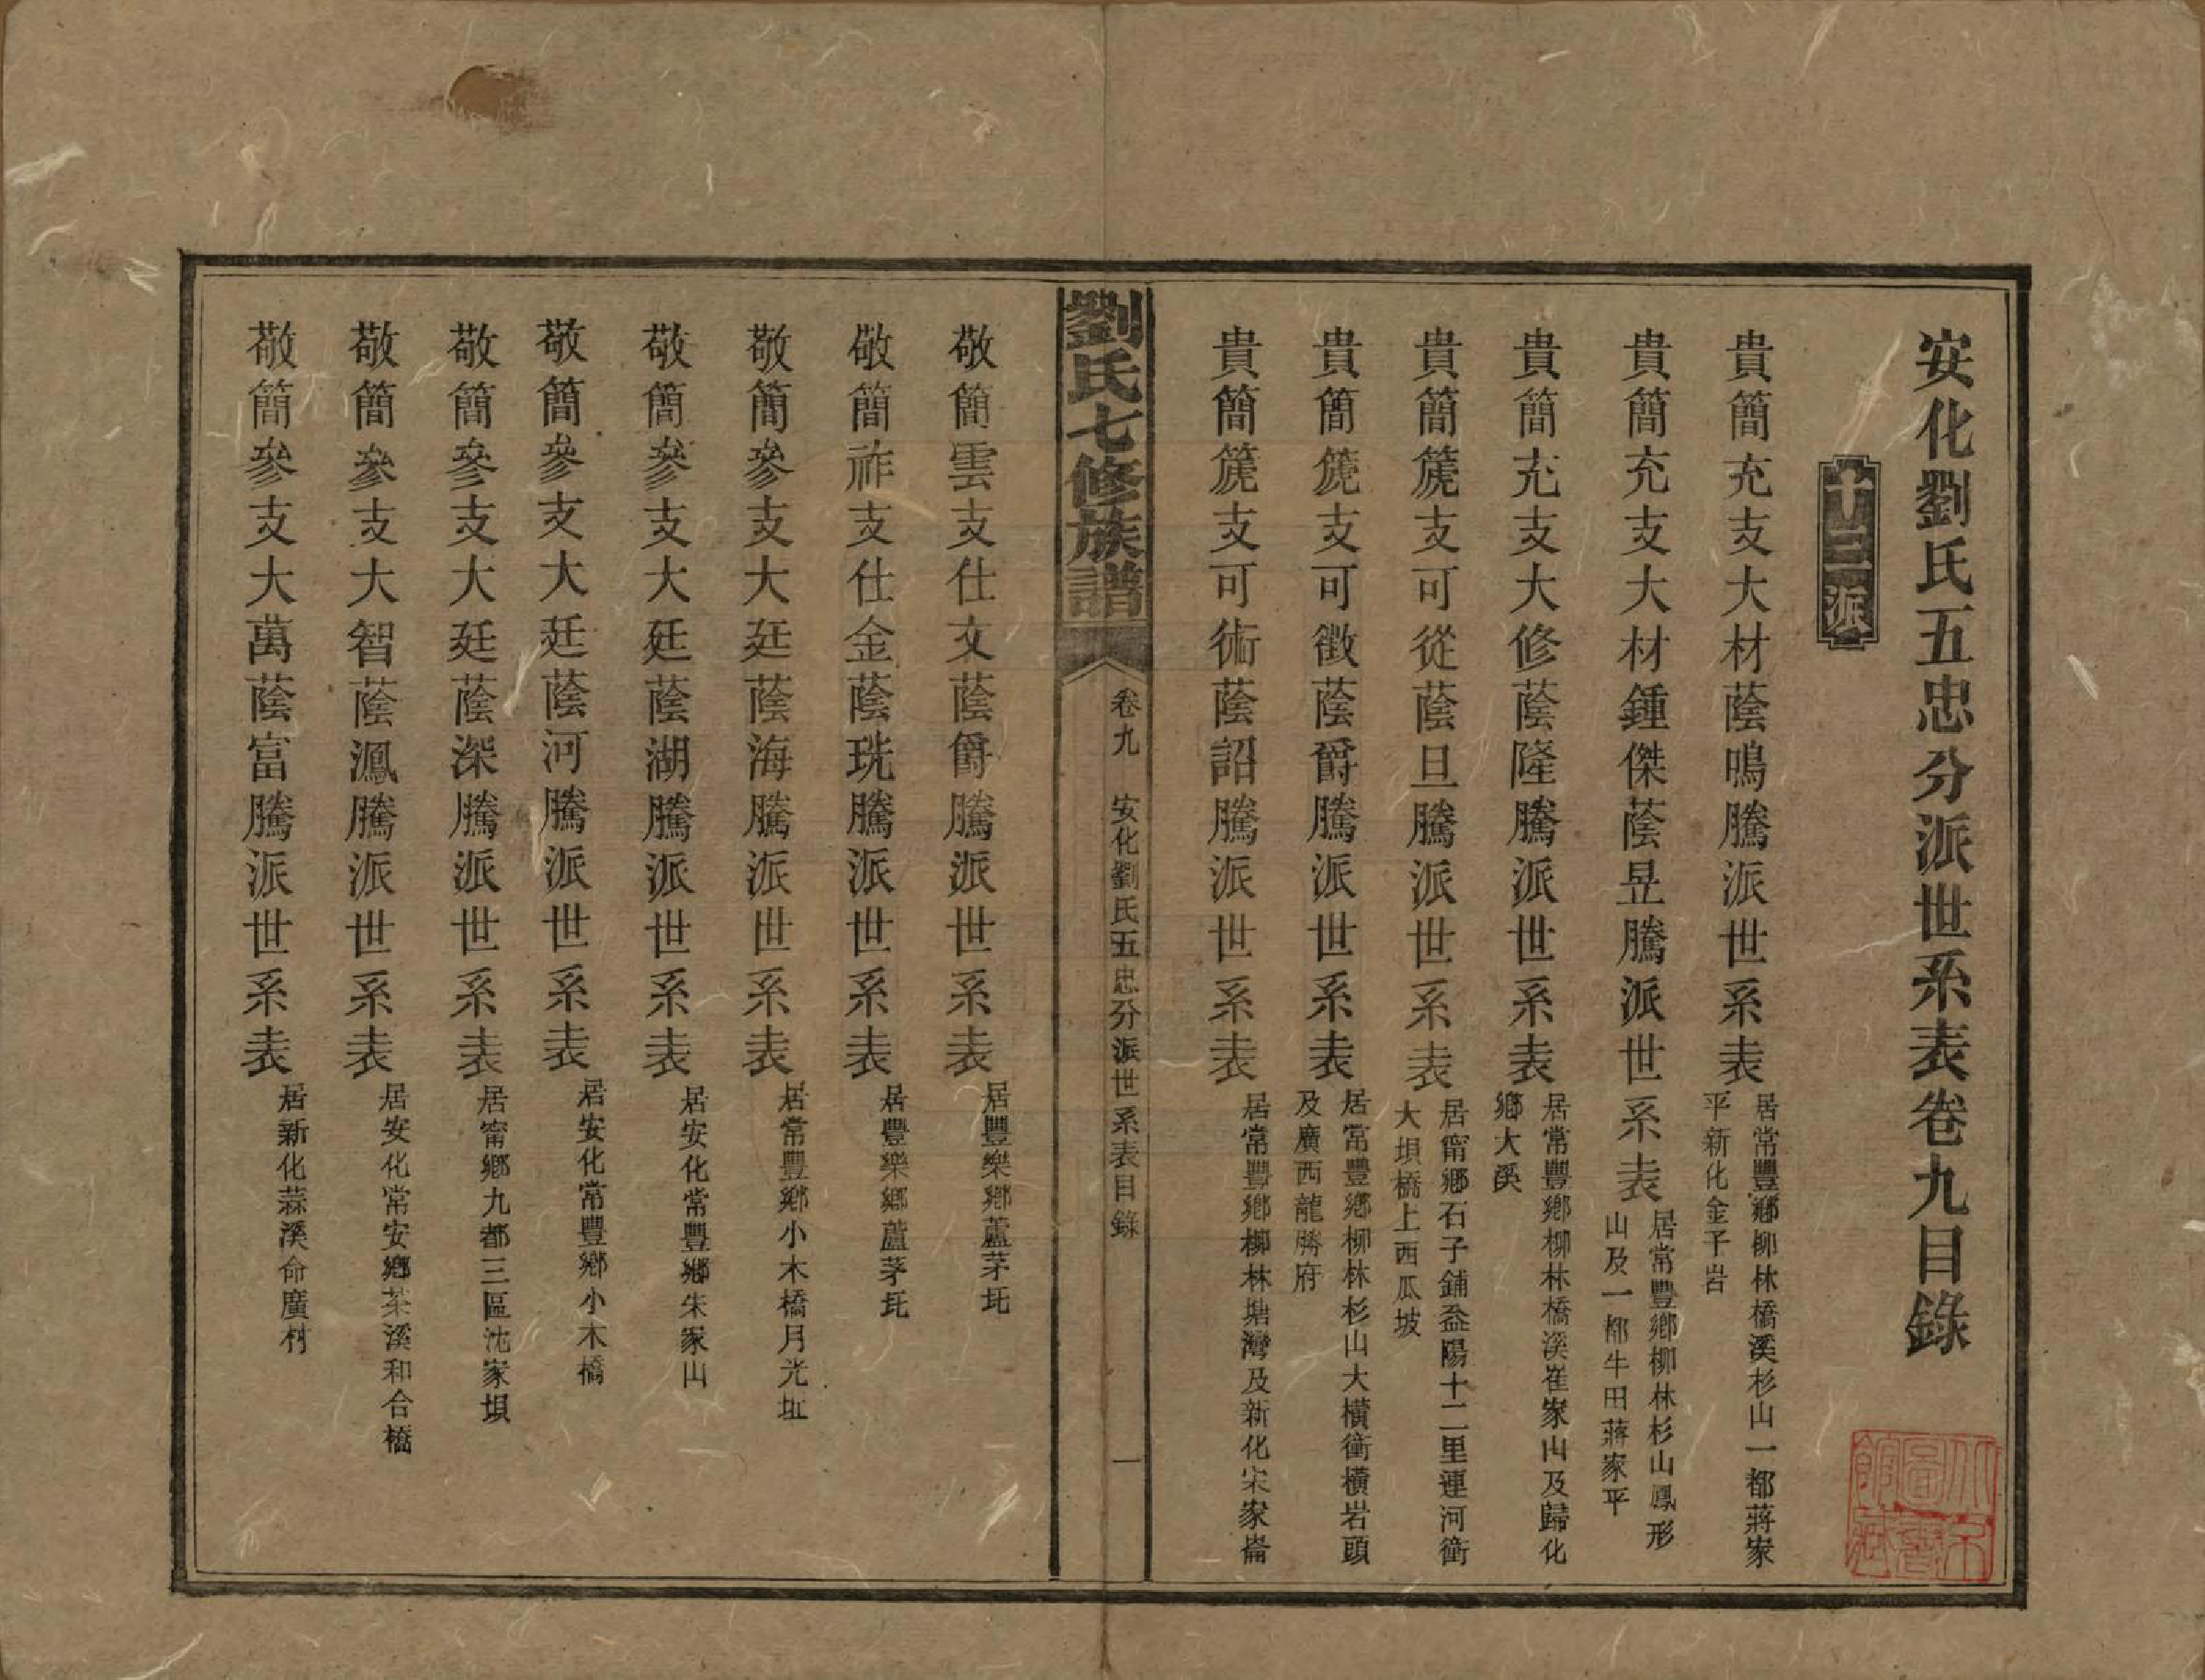 安化劉氏五忠分派世系表卷九目錄
十三派
貴簡充支大材蔭鳴騰派世系表 居常豐鄉柳林橋溪杉山一都蔣家平新化金子岩
貴簡充支大材鍾傑蔭昱騰派世系表 居常豐鄉柳林杉山鳳形山及一都牛田蔣家平
貴簡充支大修蔭隆騰派世系表 居常豐鄉柳林橋溪崔家山及歸化鄉大溪
貴簡篪支可從蔭旦騰派世系表 居甯鄉石子鋪益陽十二里連河衝大垻橋上西瓜坡
貴簡篪支可徵蔭爵騰派世系表 居常豐鄉柳林杉山大橫衝橫岩頭及廣西龍勝府
貴簡篪支可術蔭詔騰派世系表 居常豐鄉柳林塘灣及新化宋家崙
劉氏七修族譜 卷九 安化劉氏五忠分派世系表目錄 一
敬簡雲支仕文蔭爵騰派世系表 居豐樂鄉蘆茅坵
敬簡祚支仕金蔭珖騰派世系表 居豐樂鄉蘆茅坵
敬簡參支大廷蔭海騰派世系表 居常豐鄉小木橋月光坵
敬簡參支大廷蔭湖騰派世系表 居安化常豐鄉朱家山
敬簡參支大廷蔭河騰派世系表 居安化常豐鄉小木橋
敬簡參支大廷蔭深騰派世系表 居甯鄉九都三區沈家垻
敬簡參支大智蔭鳳騰派世系表 居安化常安鄉茶溪和合橋
敬簡參支大萬蔭富騰派世系表 居新化蒜溪命廣村